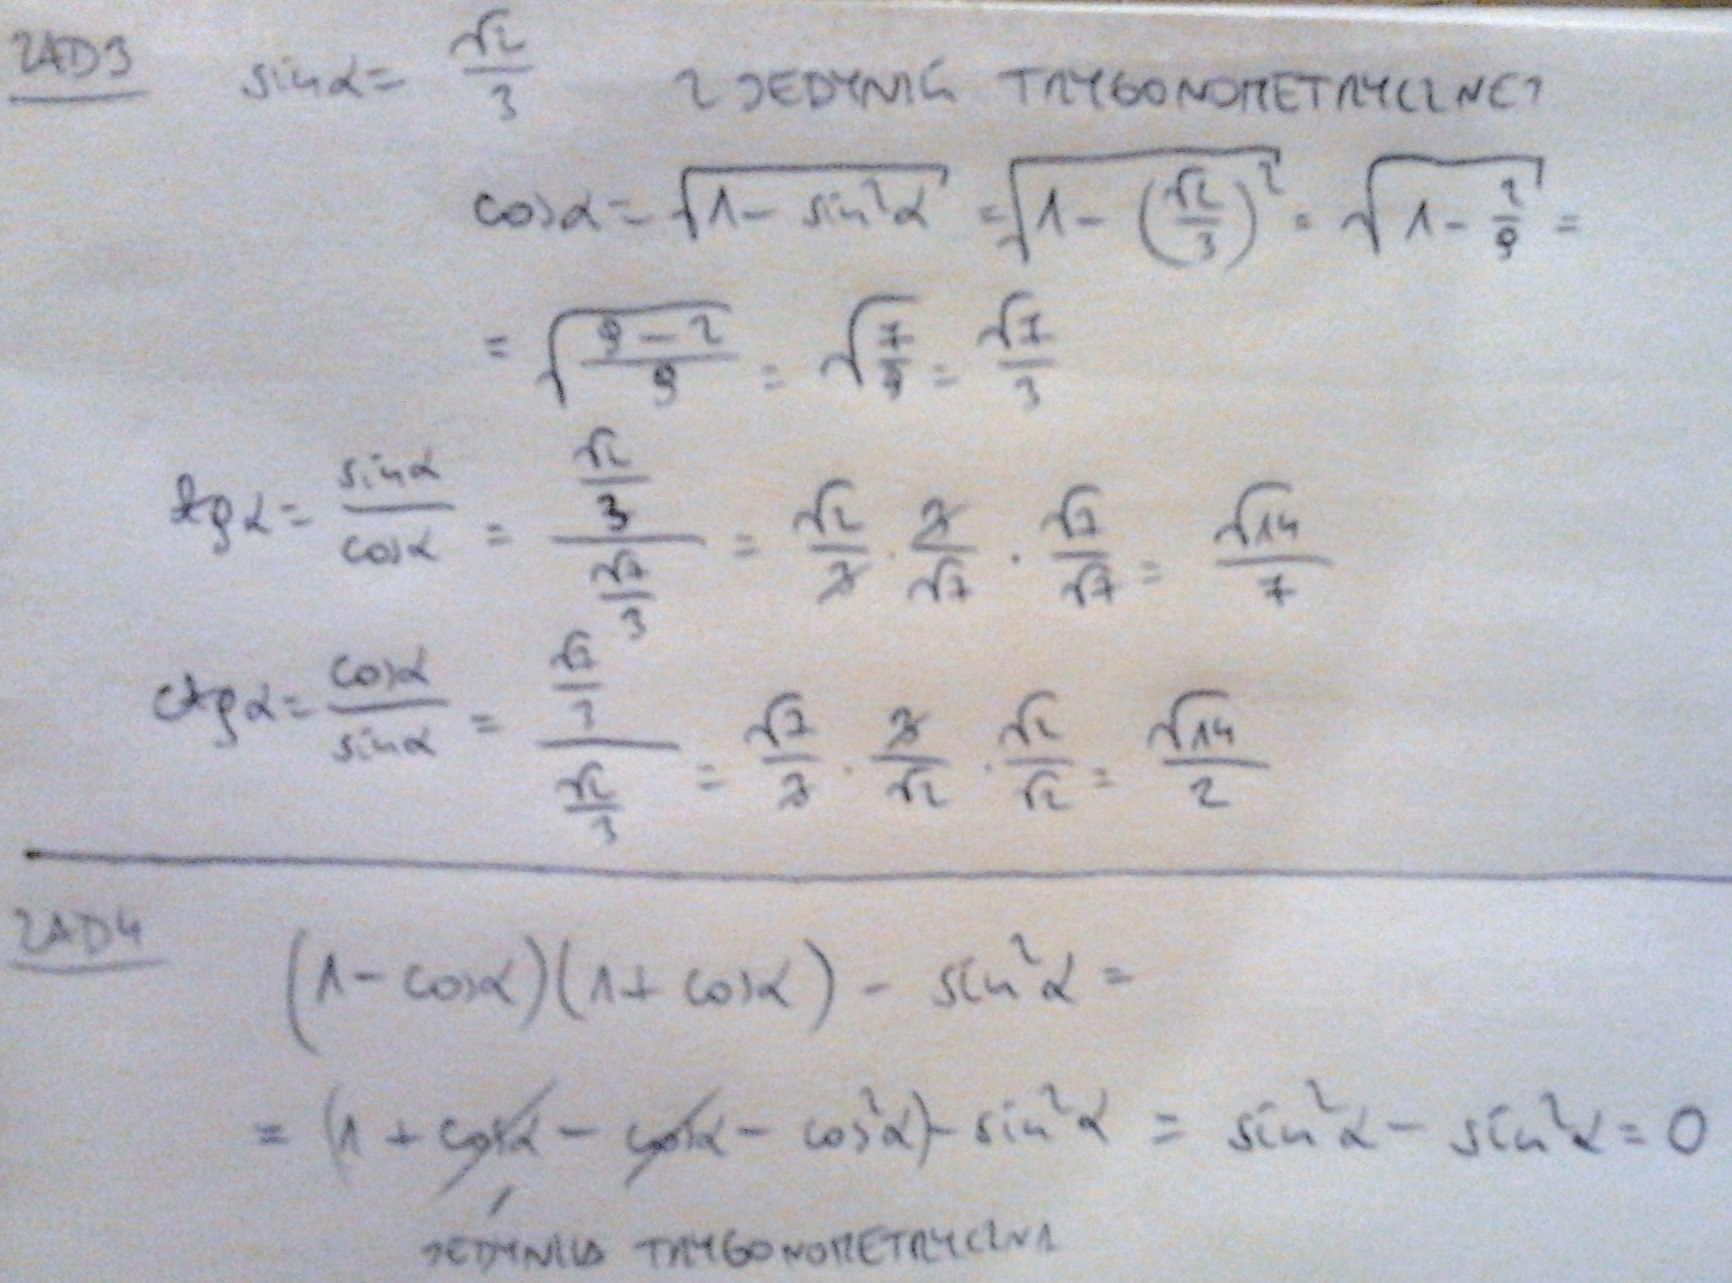 ZAD3 sinα = √2/3 Z JEDYNKI TRYGONOMETRYCZNEJ
cosα = √(1 - sin²α) = √(1 - (√2/3)²) = √(1 - 2/9) =
= √((9-2)/9) = √(7/9) = √7/3
tgα = sinα/cosα = (√2/3)/(√7/3) = √2/3 · 3/√7 · √7/√7 = √14/7
ctgα = cosα/sinα = (√7/3)/(√2/3) = √7/3 · 3/√2 · √2/√2 = √14/2
ZAD4 (1 - cosα)(1 + cosα) - sin²α =
= (1 + cosα - cosα - cos²α) - sin²α = sin²α - sin²α = 0
JEDYNKA TRYGONOMETRYCZNA